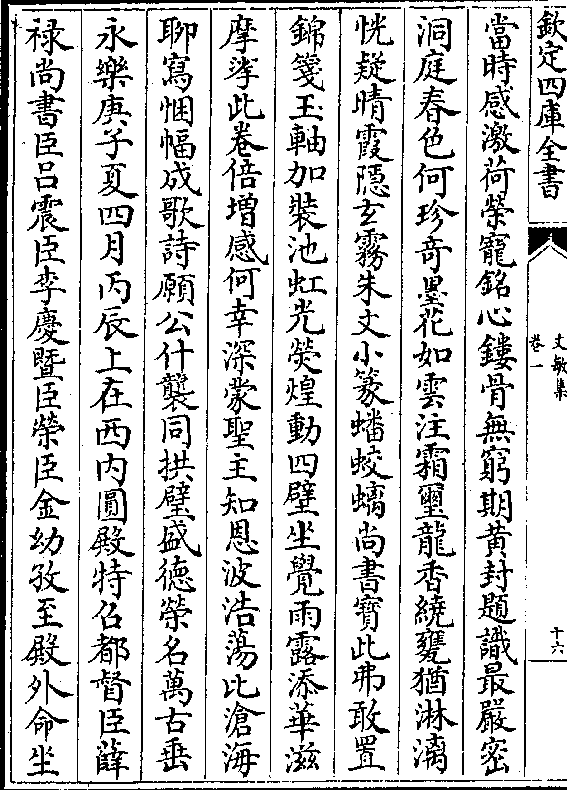 欽定四庫全書
文敏集
卷一
十六
當時感激荷榮寵銘心鏤骨無窮期黄封題識最嚴密
洞庭春色何珍竒墨花如雲注霜璽龍香繞甕猶淋漓
恍疑晴霞隱𤣥霧朱文小篆蟠蛟螭尚書寳此弗敢置
錦箋玉軸加裝池虹光熒煌動四壁坐覺雨露添華滋
摩挲此卷倍増感何幸深蒙聖主知恩波浩蕩比滄海
聊寫悃愊成歌詩願公什襲同拱璧盛德榮名萬古垂
永樂庚子夏四月丙辰上在西内圓殿特召都督臣薛
禄尚書臣吕震臣李慶暨臣榮臣金幼孜至殿外命坐